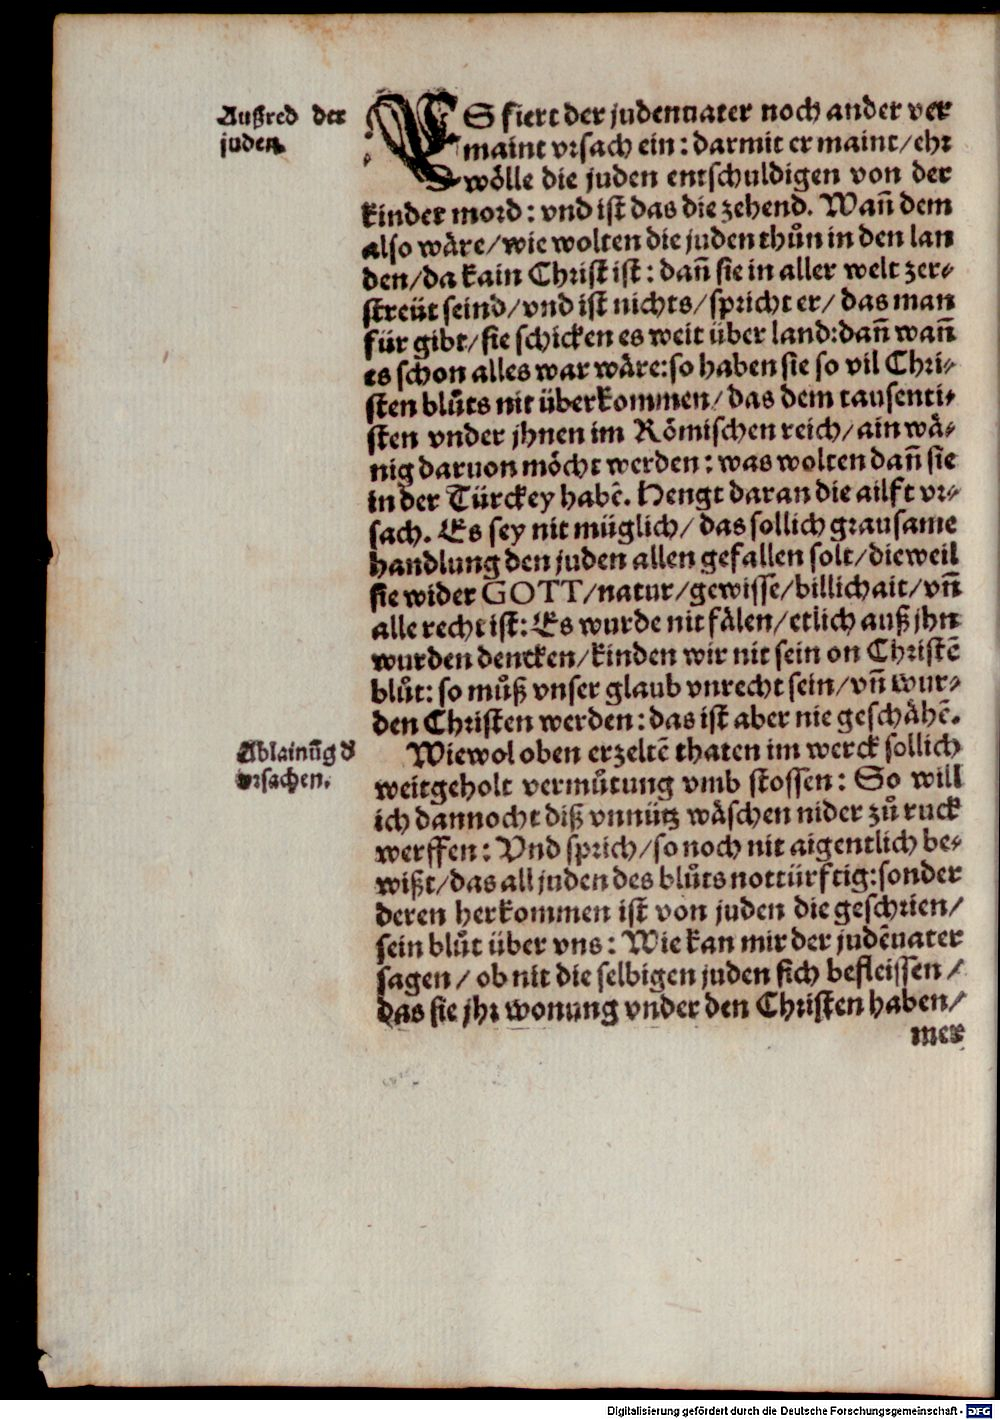 Außred der
juden.
ES fiert der judenuater noch ander ver
maint vrsach ein: darmit er maint/ehr
wölle die juden entschuldigen von der
kinder mord: vnd ist das die zehend. Wañ dem
also wäre/wie wolten die juden thůn in den lan
den/da kain Christ ist: dañ sie in aller welt zer⸗
streüt seind/vnd ist nichts/spricht er/ das man
für gibt/sie schicken es weit über land:dañ wañ
es schon alles war wäre:so haben sie so vil Chri⸗
sten blůts nit überkommen/ das dem tausenti⸗
sten vnder jhnen im Römischen reich/ain wä⸗
nig daruon möcht werden: was wolten dañ sie
in der Türckey habē. Hengt daran die ailft vr⸗
sach. Es sey nit müglich/ das sollich grausame
handlung den juden allen gefallen solt/dieweil
sie wider GOTT/natur/gewisse/billichait/vñ
alle recht ist: Es wurde nit fälen/etlich auß jhn
wurden dencken/kinden wir nit sein on Christē
blůt: so můß vnser glaub vnrecht sein/vñ wur⸗
den Christen werden: das ist aber nie geschähē.
Ablainūg d
vrsachen.
Wiewol oben erzeltē thaten im werck sollich
weitgeholt vermůtung vmb stossen: So will
ich dannocht diß vnnütz wäschen nider zů ruck
werffen: Vnd sprich/so noch nit aigentlich be⸗
wißt/das all juden des blůts nottürftig:sonder
deren herkommen ist von juden die geschrien/
sein blůt über vns: Wie kan mir der judēuater
sagen/ ob nit die selbigen juden sich befleissen/
das sie jhr wonung vnder den Christen haben/
mer
Digitalisierung gefördert durch die Deutsche Forschungsgemeinschaft - DFG